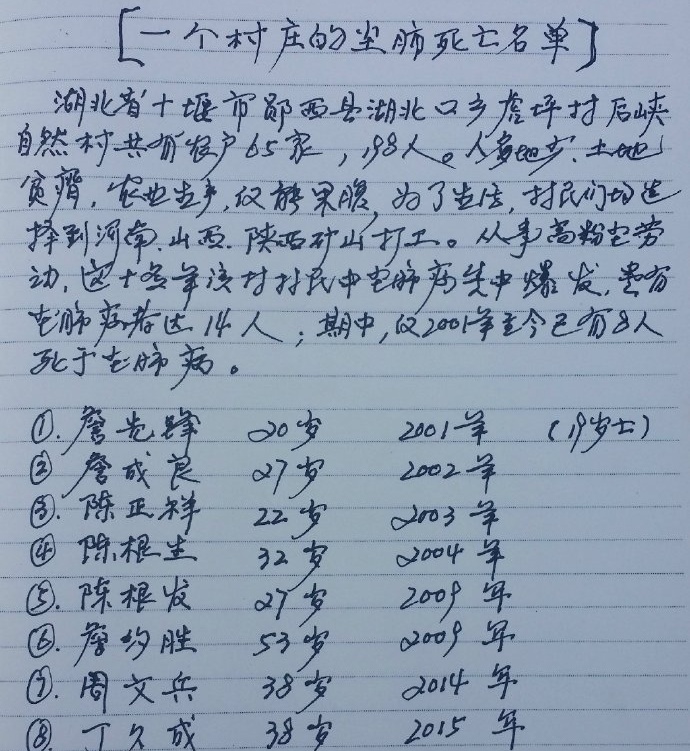 [一个村庄的尘肺死亡名单]
湖北省十堰市郧西县湖北口乡虎坪村后峡
自然村共有农户65家，198人。人多地少.土地
贫瘠，农业生产，仅能果腹，为了生活，村民们选
择到河南.山西.陕西矿山打工。从事高粉尘劳
动，这十多年该村村民中尘肺病集中爆发，患有
尘肺病者达14人；期中，仅2001年至今已有8人
死于尘肺病。
①.詹先锋 20岁 2001年 (19岁亡)
② 詹成良 27岁 2002年
③.陈正祥 22岁 2003年
④ 陈根生 32岁 2004年
⑤.陈根发 27岁 2009年
⑥.詹均胜 53岁 2009年
⑦.周文兵 38岁 2014年
⑧.丁久成 38岁 2015年